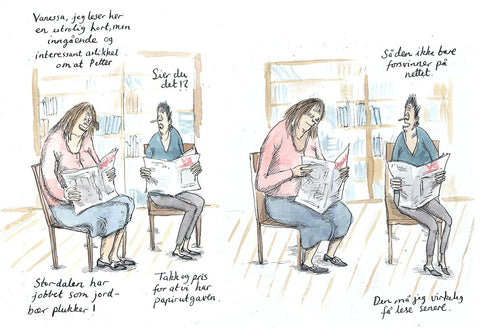 Vanessa, jeg leser her
en utrolig kort, men
inngående og
interessant artikkel
om at Petter
Sier du
det!?
Stordalen har
jobbet som jord-
bær plukker!
Takk og pris
for at vi har
papirutgaven.
Så den ikke bare
forsvinner på
nettet.
Den må jeg virkelig
få lese senere.